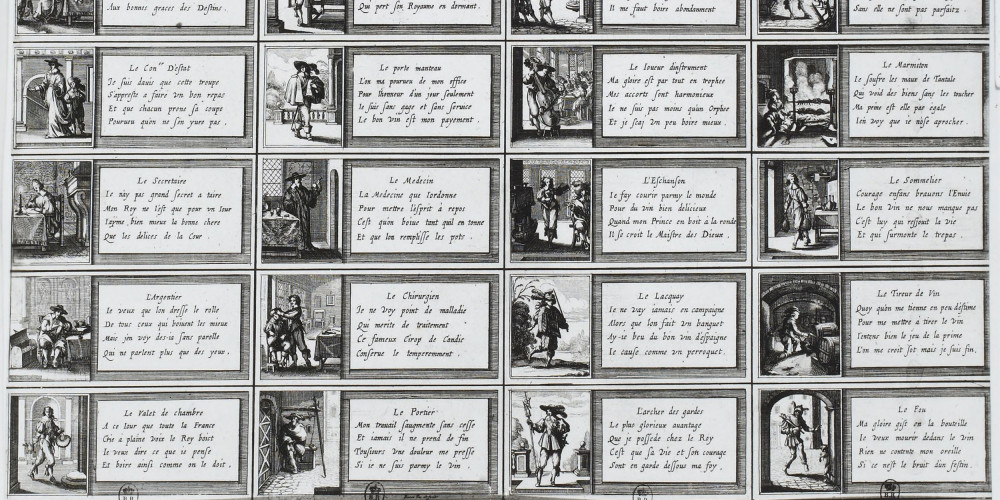 Aux bonnes graces des Destins.
Qui pert son Royaume en dormant.
Il me faut boire abondamment
Sans elle ne sont pas parfaitz
Le Con.er D'estat
Je suis davis que cette troupe
S'appreste a faire un bon repas
Et que chacun prens sa coupe
Pourueu qu'on ne s'en yure pas.
Le porte manteau
L'on ma pourueu de mon office
Pour lhonneur d'un jour seulement
Ie suis sans gage et sans seruice
Le bon vin est mon payement.
Le Ioueur dinstrument
Ma gloire est par tout en trophee
Mes accorts sont harmonieux
Ie ne suis pas moins qu'un Orphee
Et je scay un peu boire mieux.
Le Marmiton
Ie soufre les maux de Tantale
Qui void des biens sans les toucher
Ma peine est elle pas egale
I'en voy que ie n'ose aprocher.
Le Secretaire
Ie n'ay pas grand secret a taire
Mon Roy ne l'est que pour un Iour
I'ayme bien mieux la bonne chere
Que les delices de la Cour.
Le Medecin
La Medecine que Iordonne
Pour mettre l'esprit a repos
C'est qu'on boiue tant quil en tonne
Et que lon remplisse les pots.
L'Eschanson
Ie fay courir parmy le monde
Pour du vin bien délicieux
Quand mon Prince en boit à la ronde
Il se croit le Maistre des Dieux.
Le Sommelier
Courage enfans brauons l'Enuie
Le bon vin ne nous manque pas
C'est luy qui resseuit la vie
Et qui surmonte le trepas.
L'Argentier
Ie veux que lon dresse le rolle
De tous ceux qui boiuent les mieux
Mais j'en voy des-ia sans parolle
Qui ne parlent plus que des yeux.
Le Chirurgien
Ie ne voy point de malladie
Qui merite de traitement
Ce fameux Cirop de Candie
Conserue le temperemment.
Le Lacquay
Ie ne vay iamais en campaigne
Alors que lon fait un banquet
Ay-ie beu du bon vin d'espaigne
Ie cause comme un perroquet.
Le Tireur de Vin
Quoy qu'on me tienne en peu destime
Pour me mettre à tirer le vin
I'intens bien le jeu de la prime
L'on me croit sot mais je suis fin.
Le Valet de chambre
A ce iour que toute la France
Crie à plaine voix le Roy boict
Ie veux dire ce que ie pense
Et boire ainsi comme on le doit.
Le Portier
Mon trauail s'augmente sans cesse
Et iamais il ne prend de fin
Tousieurs une douleur me presse
Si ie ne suis parmy le vin
L'archer des gardes
Le plus glorieux auantage
Que je possede chez le Roy
C'est que sa Vie et son courage
Sont en garde dessous ma foy.
Le Fou
Ma gloire gist en la bouteille
Ie veux mourir dedans le vin
Rien ne contente mon oreille
Si ce nest le bruit d'un festin.